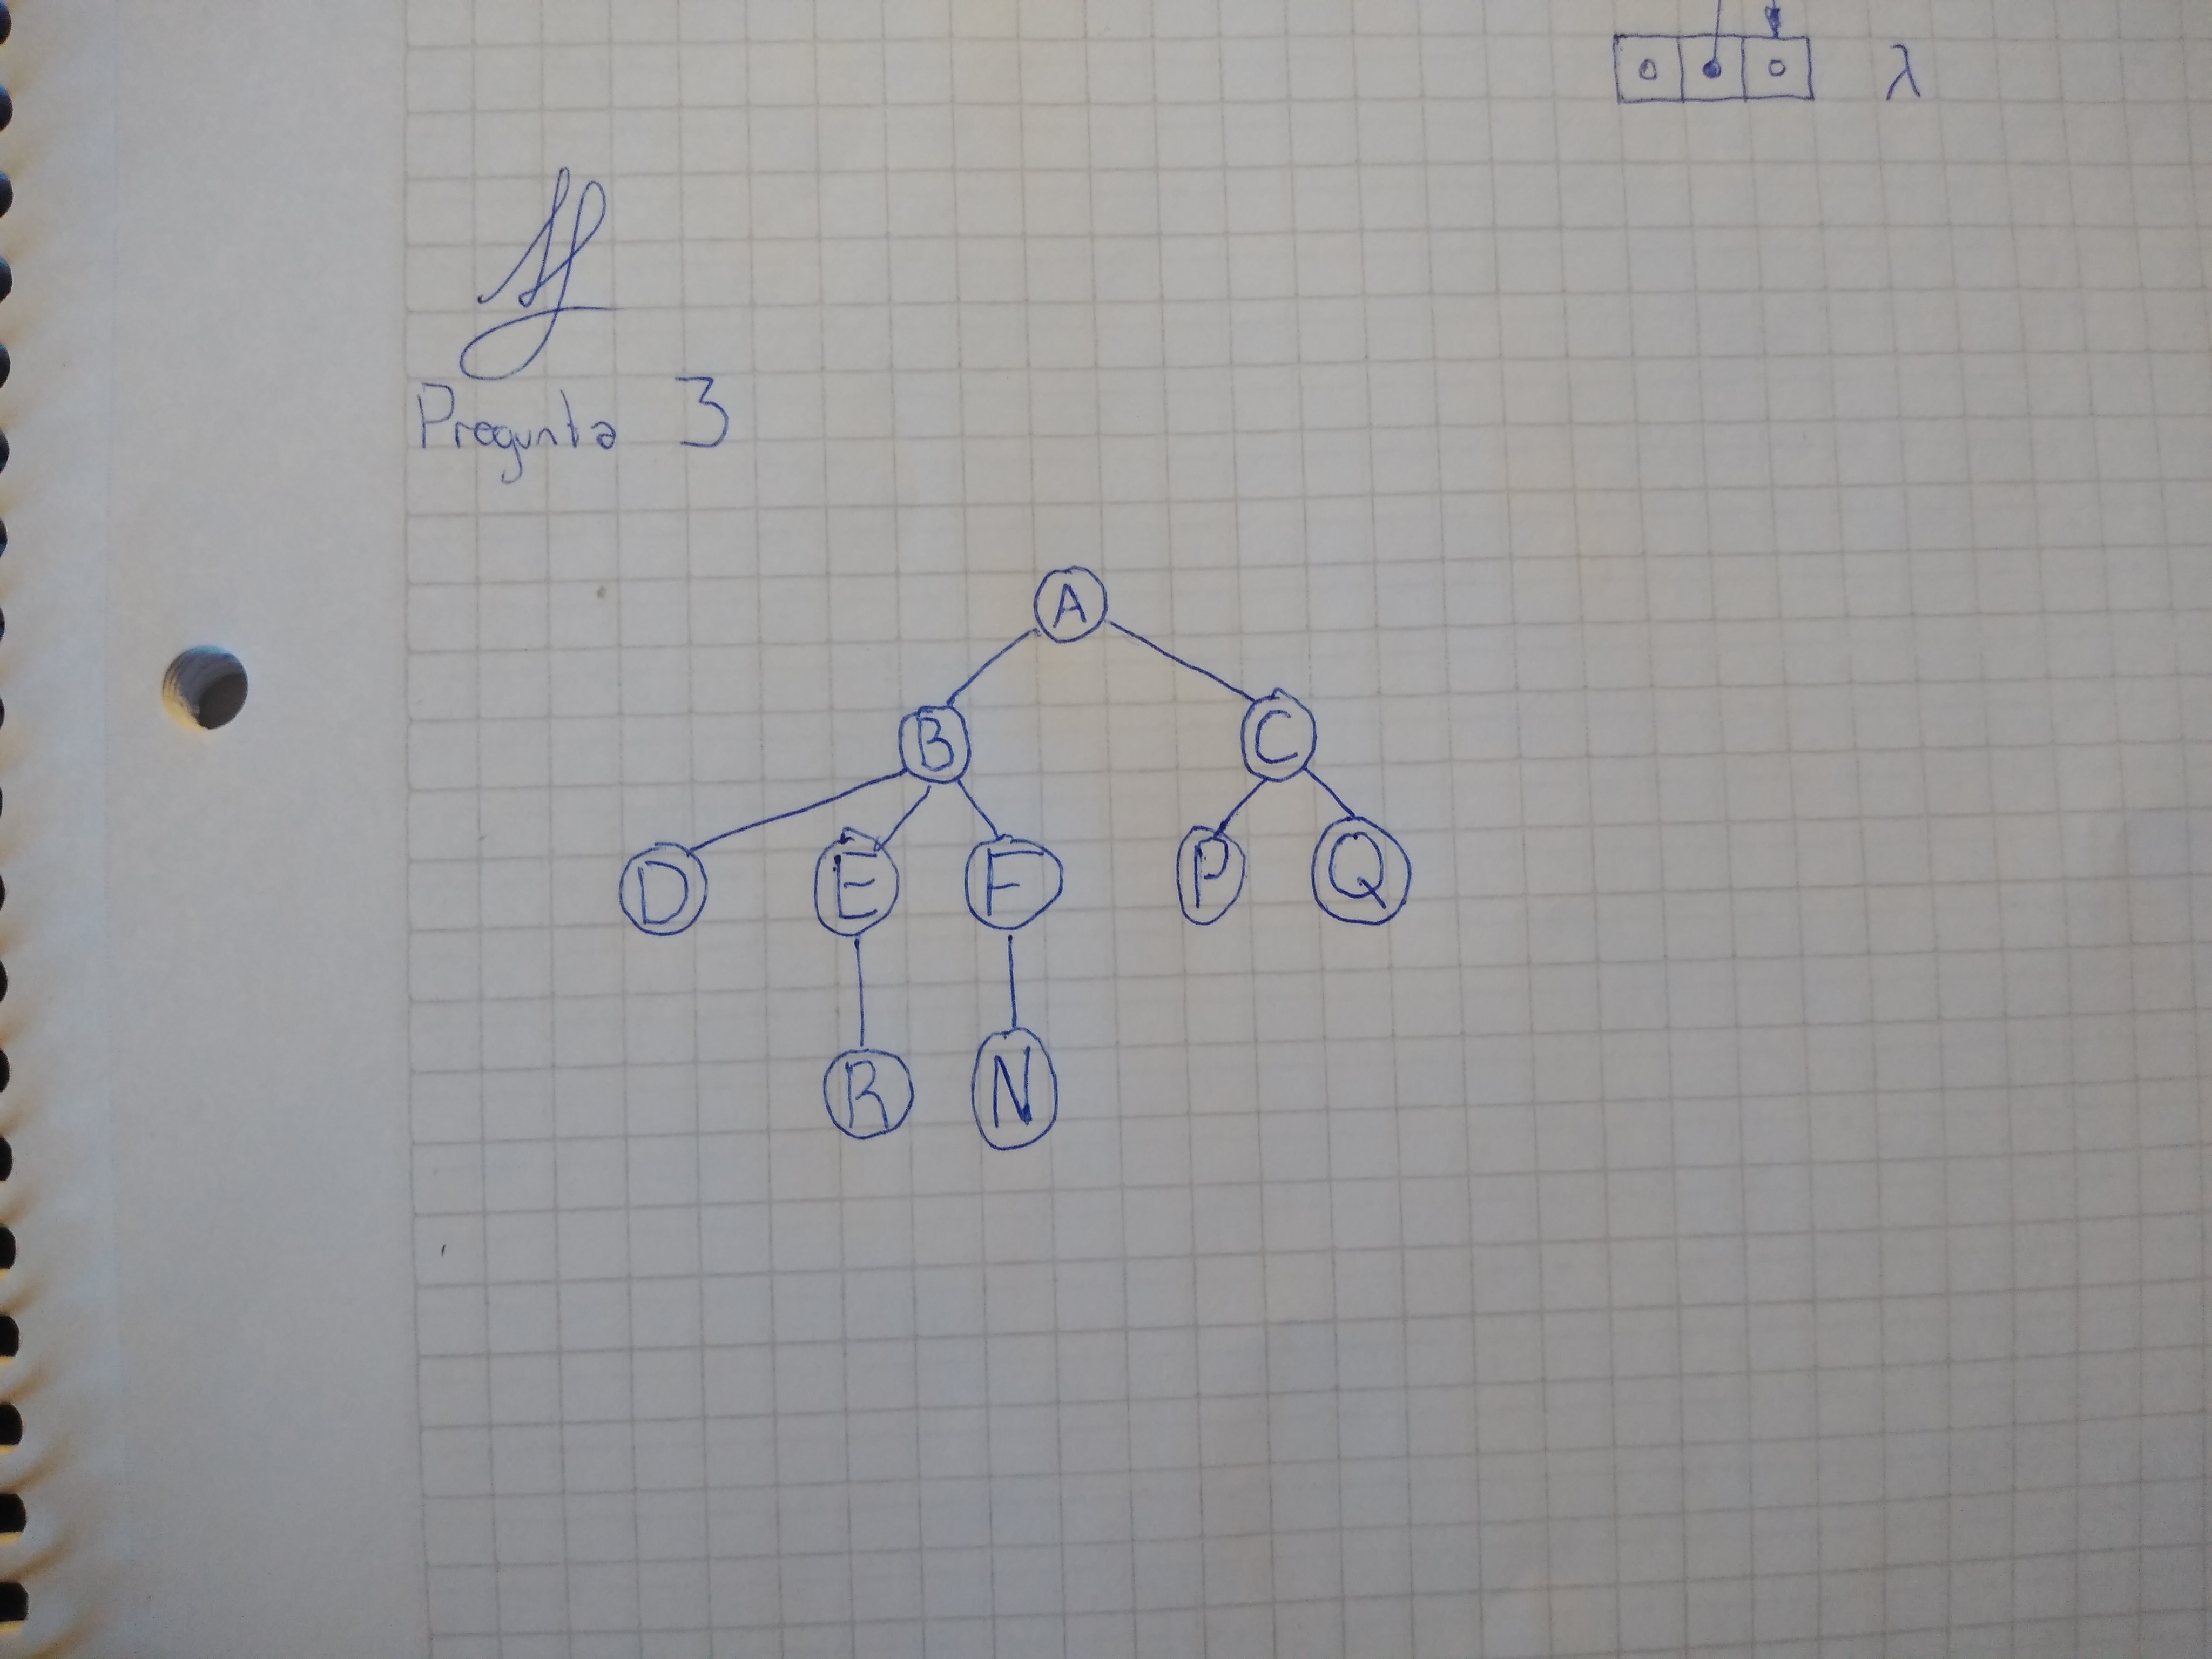 λ
Pregunta 3
A
B C
D E F P Q
R N